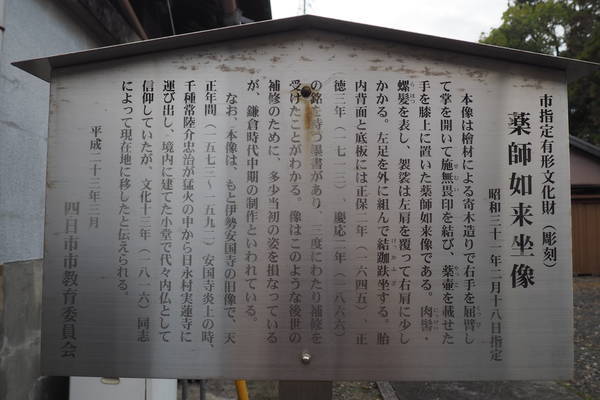 市指定有形文化財（彫刻）
薬師如来坐像
昭和三十一年二月十八日指定
本像は檜材による寄木造りで右手を屈臂し
て掌を開いて施無畏印を結び、薬壷を載せた
手を膝上に置いた薬師如来像である。肉髻・
螺髪を表し、袈裟は左肩を覆って右肩に少し
かかる。左足を外に組んで結跏趺坐する。胎
内背面と底板には正保二年（一六四五）、正
徳三年（一七一三）、慶応二年（一八六六）
の銘を持つ墨書があり、三度にわたり補修を
受けたことがわかる。像はこのような後世の
補修のために、多少当初の姿を損なっている
が、鎌倉時代中期の制作といわれている。
なお、本像は、もと伊勢安国寺の旧像で、天
正年間（一五七三～一五九二）安国寺炎上の時、
千種常陸介忠治が猛火の中から日永村実蓮寺に
運び出し、境内に建てた小堂で代々内仏として
信仰していたが、文化十三年（一八一六）同志
によって現在地に移したと伝えられる。
平成二十三年三月
四日市市教育委員会